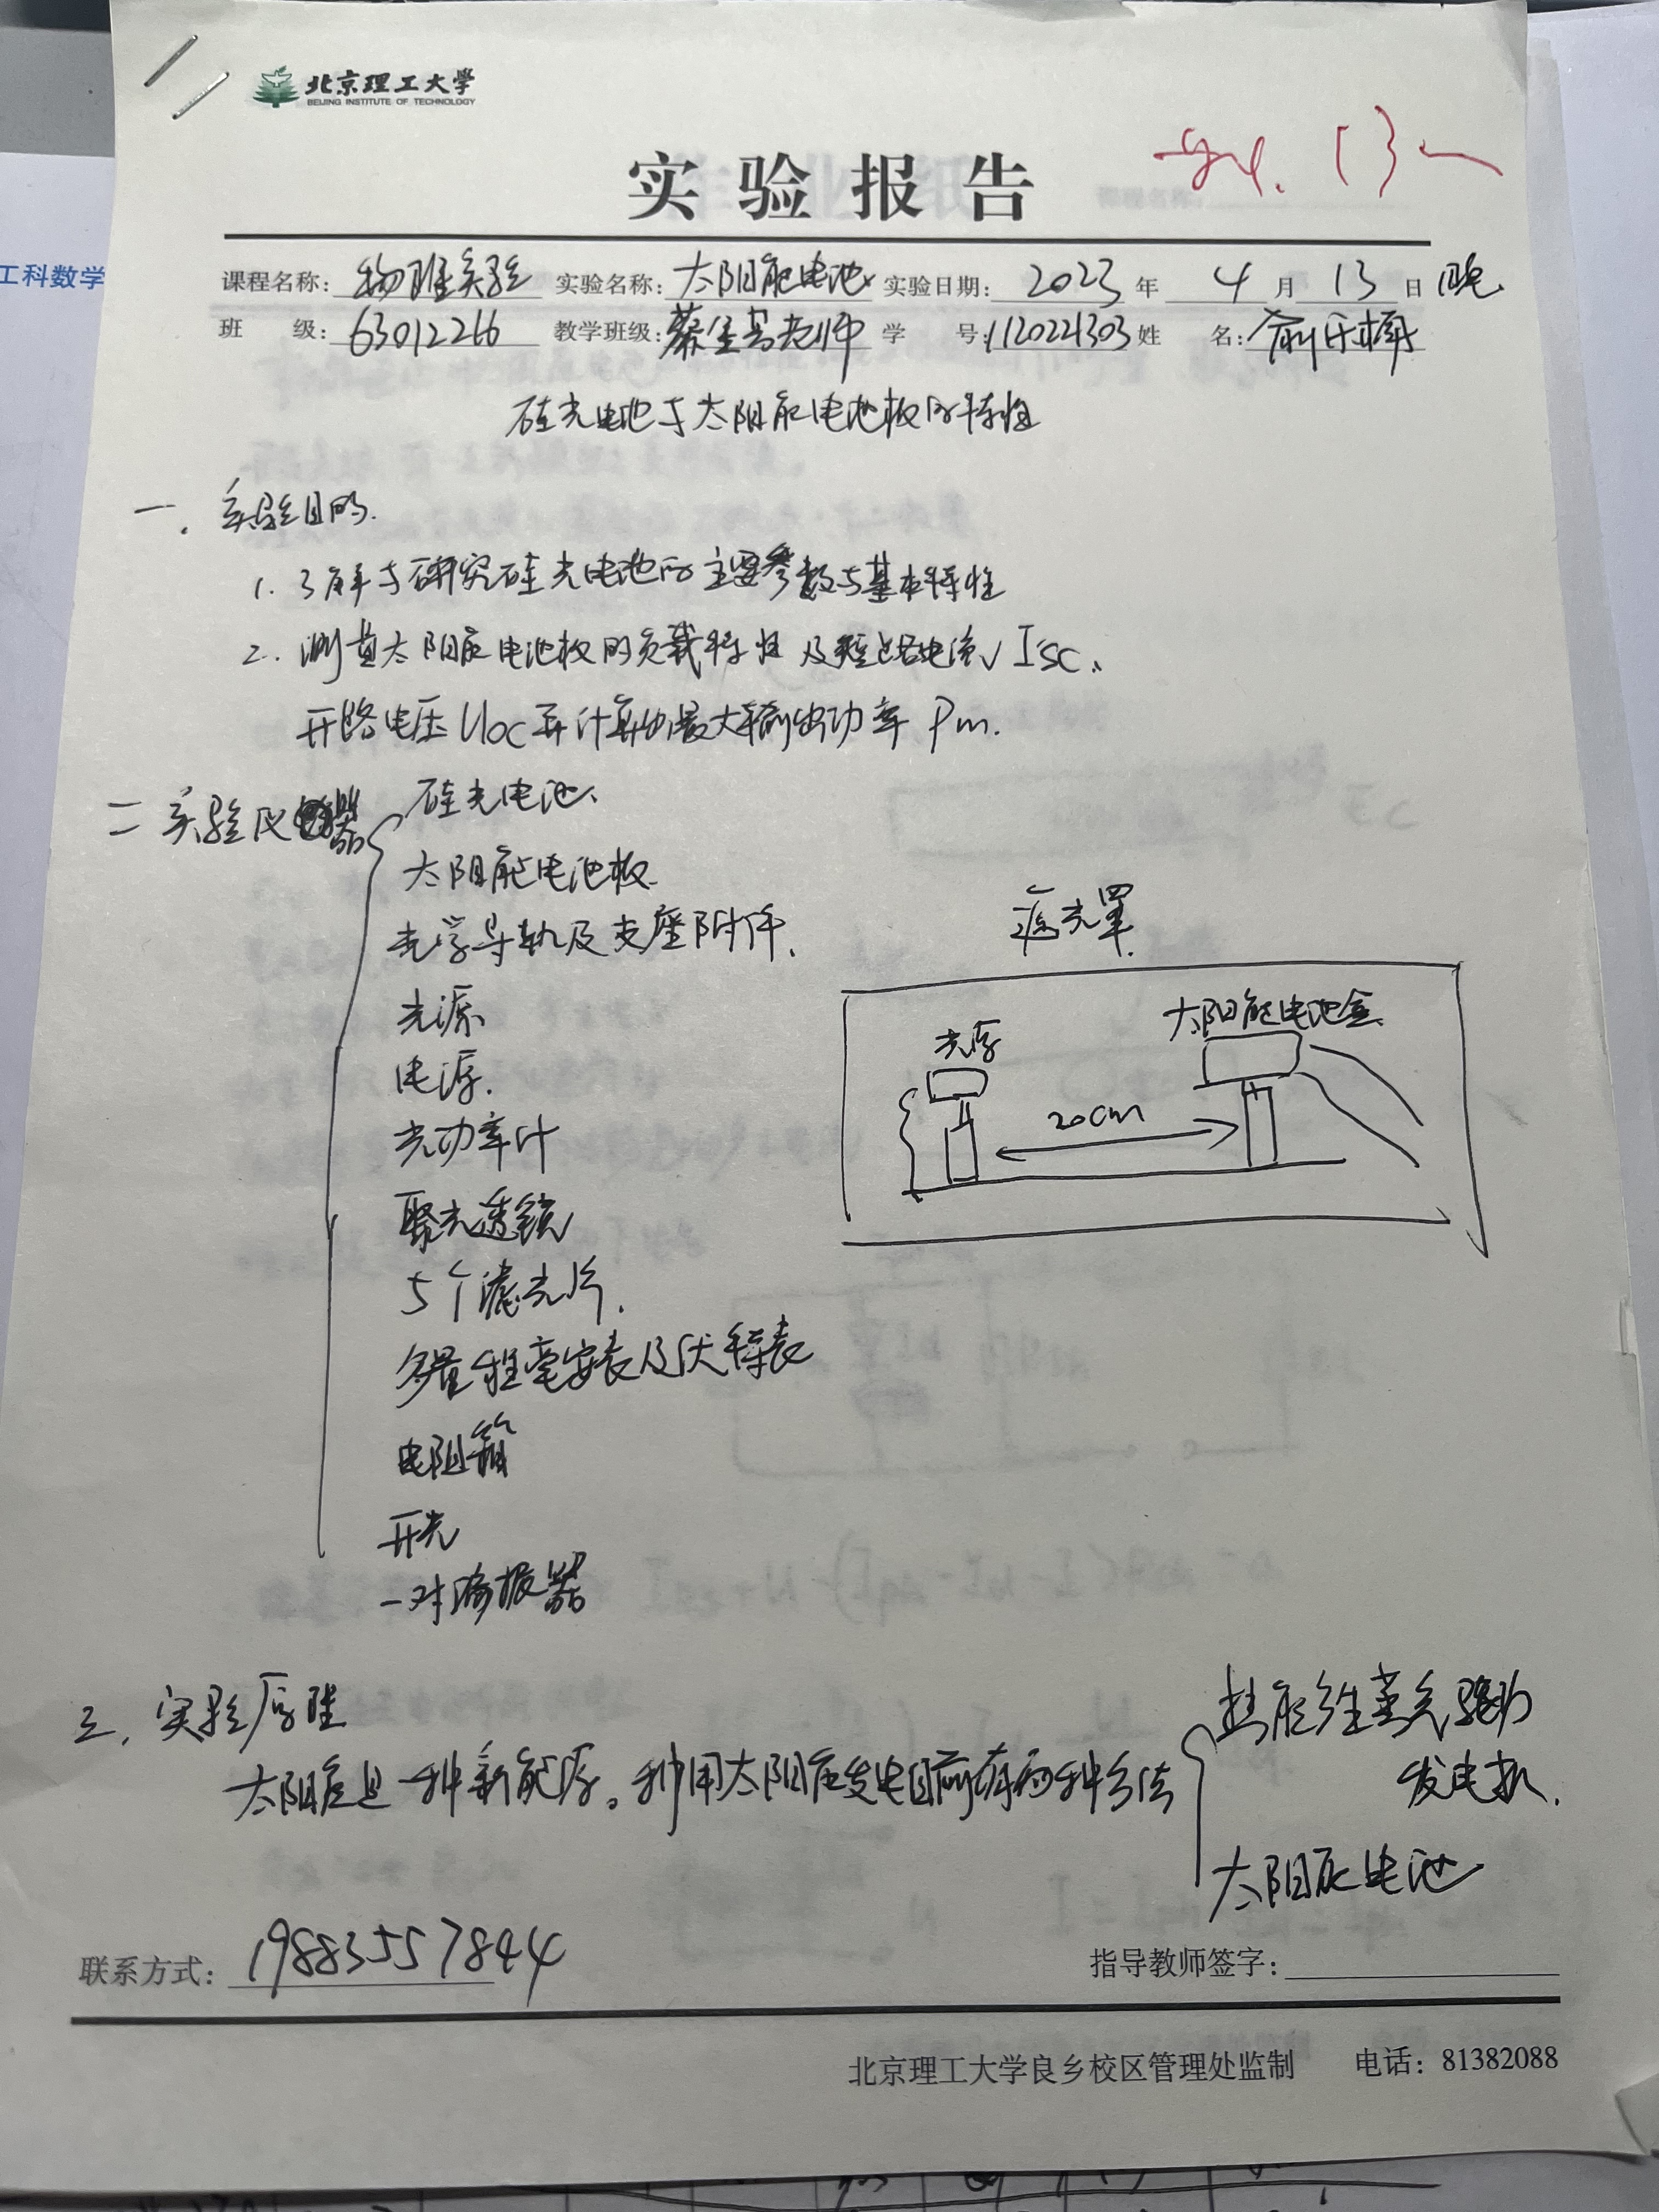 工科数学
北京理工大学
BEIJING INSTITUTE OF TECHNOLOGY
实验报告
课程名称: 物理实验 实验名称: 太阳能电池 实验日期: 2023 年 4 月 13 日 晚
班 级: 63012266 教学班级: 老师 学 号: 112021303 姓 名:
硅光电池与太阳能电池板的特性
一. 实验目的.
1. 了解与研究硅光电池的主要参数与基本特性
2. 测量太阳能电池板的负载特性及短路电流 Isc、
开路电压 Uoc 并计算出最大输出功率 Pm.
二 实验仪器
硅光电池、
太阳能电池板.
光学导轨及支座附件.
光源
电源.
光功率计
聚光透镜
5个滤光片.
多量程毫安表及伏特表
电阻箱
开光
一对偏振器
遮光罩
光源
太阳能电池盒
20cm
三. 实验原理
太阳能是一种新能源。利用太阳能发电目前有两种方法
热能产生蒸气驱动
发电机.
太阳能电池
联系方式: 19883557844
指导教师签字:
北京理工大学良乡校区管理处监制 电话: 81382088